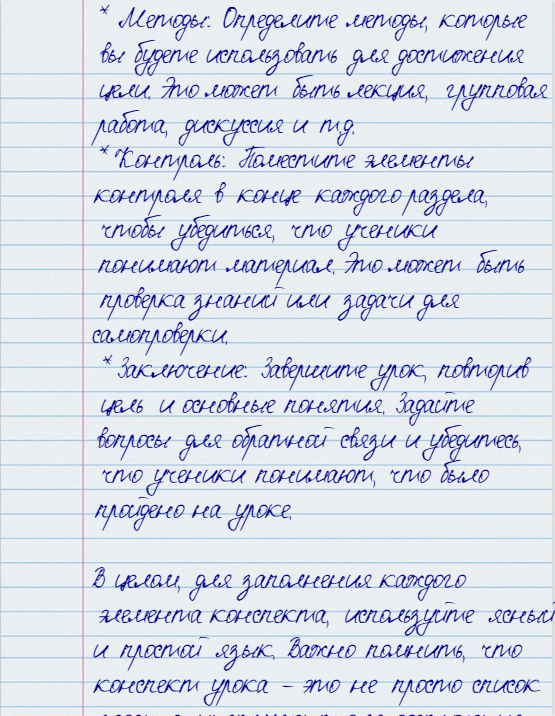 * Методы: Определите методы, которые
вы будете использовать для достижения
цели. Это может быть лекция, групповая
работа, дискуссия и т.д.
* Контроль: Поместите элементы
контроля в конце каждого раздела,
чтобы убедиться, что ученики
понимают материал. Это может быть
проверка знаний или задачи для
самопроверки.
* Заключение: Завершите урок, повторив
цель и основные понятия. Задайте
вопросы для обратной связи и убедитесь,
что ученики понимают, что было
пройдено на уроке.
В целом, для заполнения каждого
элемента конспекта, используйте ясный
и простой язык. Важно помнить, что
конспект урока - это не просто список